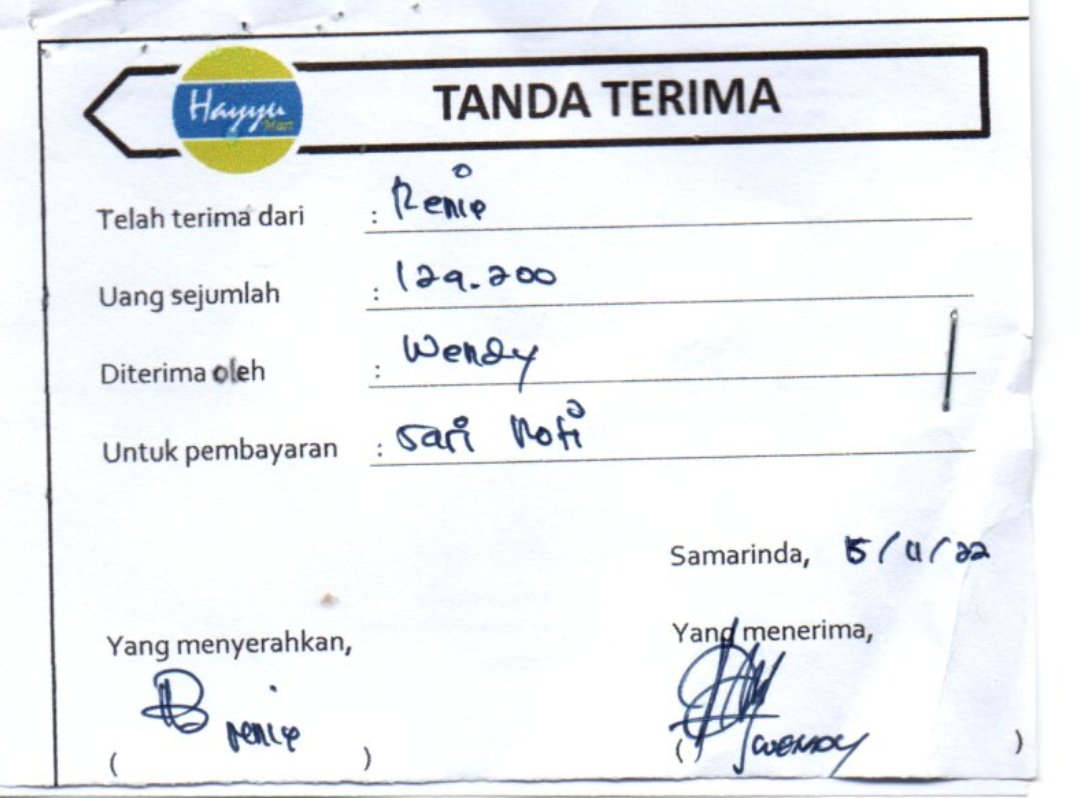 Hayyu
Mart
TANDA TERIMA
Telah terima dari : Renie
Uang sejumlah : 129.200
Diterima oleh : Wendy
Untuk pembayaran : Sari Roti
Samarinda, 5/11/22
Yang menyerahkan, Yang menerima,
renie WENDY
( ) ( )